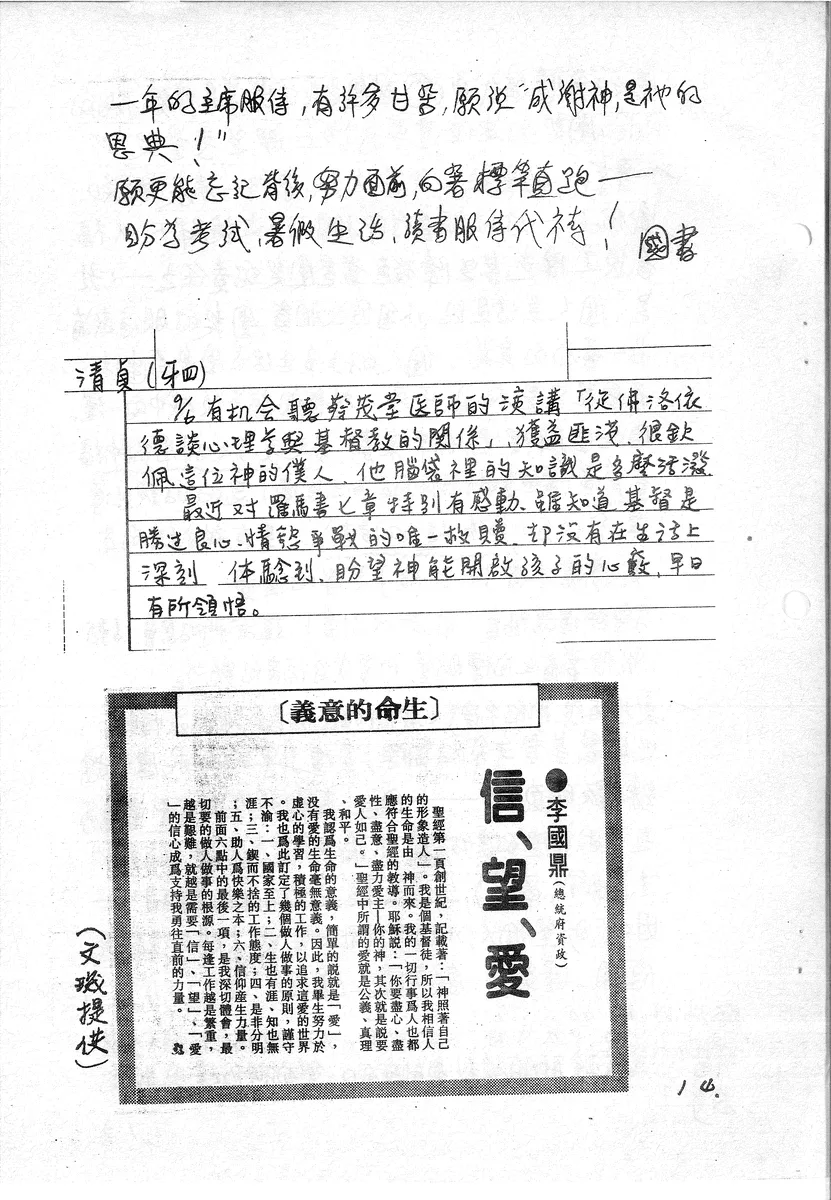 一年的主席服侍，有許多甘苦，願說"感謝神，是祂的
恩典！"
願更能忘記背後，努力面前，向著標竿直跑——
盼為考試，暑假生活，讀書服侍代禱！
國書
清貞(牙四)
9/6有机会聽蔡茂堂医師的演講「從佛洛依
德談心理学與基督教的関係」，獲益匪浅、很欽
佩這位神的僕人、他腦袋裡的知識是多麼活潑
最近对羅馬書七章特别有感動、雖知道基督是
勝过良心、情慾爭戰的唯一救贖、却没有在生活上
深刻 体驗到、盼望神能開啟孩子的心竅、早日
有所領悟。
〔生命的意義〕
信、望、愛
●李國鼎(總統府資政)
聖經第一頁創世紀，記載著：「神照著自己
的形象造人」。我是個基督徒，所以我相信人
的生命是由 神而來。我的一切行事爲人也都
應符合聖經的教導。耶穌説：「你要盡心、盡
性、盡意、盡力愛主─你的神，其次就是説要
愛人如己。」聖經中所謂的愛就是公義、真理
、和平。
我認爲生命的意義，簡單的說就是「愛」，
没有愛的生命毫無意義。因此，我畢生努力於
虛心的學習，積極的工作，以追求這愛的世界
。我也爲此訂定了幾個做人做事的原則，謹守
不渝：一、國家至上；二、生也有涯、知也無
涯；三、鍥而不捨的工作態度；四、是非分明
；五、助人爲快樂之本；六、信仰産生力量。
前面六點中的最後一項，是我深切體會，最
切要的做人做事的根源。每逢工作越是繁重，
越是艱難，就越是需要「信」、「望」、「愛
」的信心成爲支持我勇往直前的力量。
(文璣提供)
14.